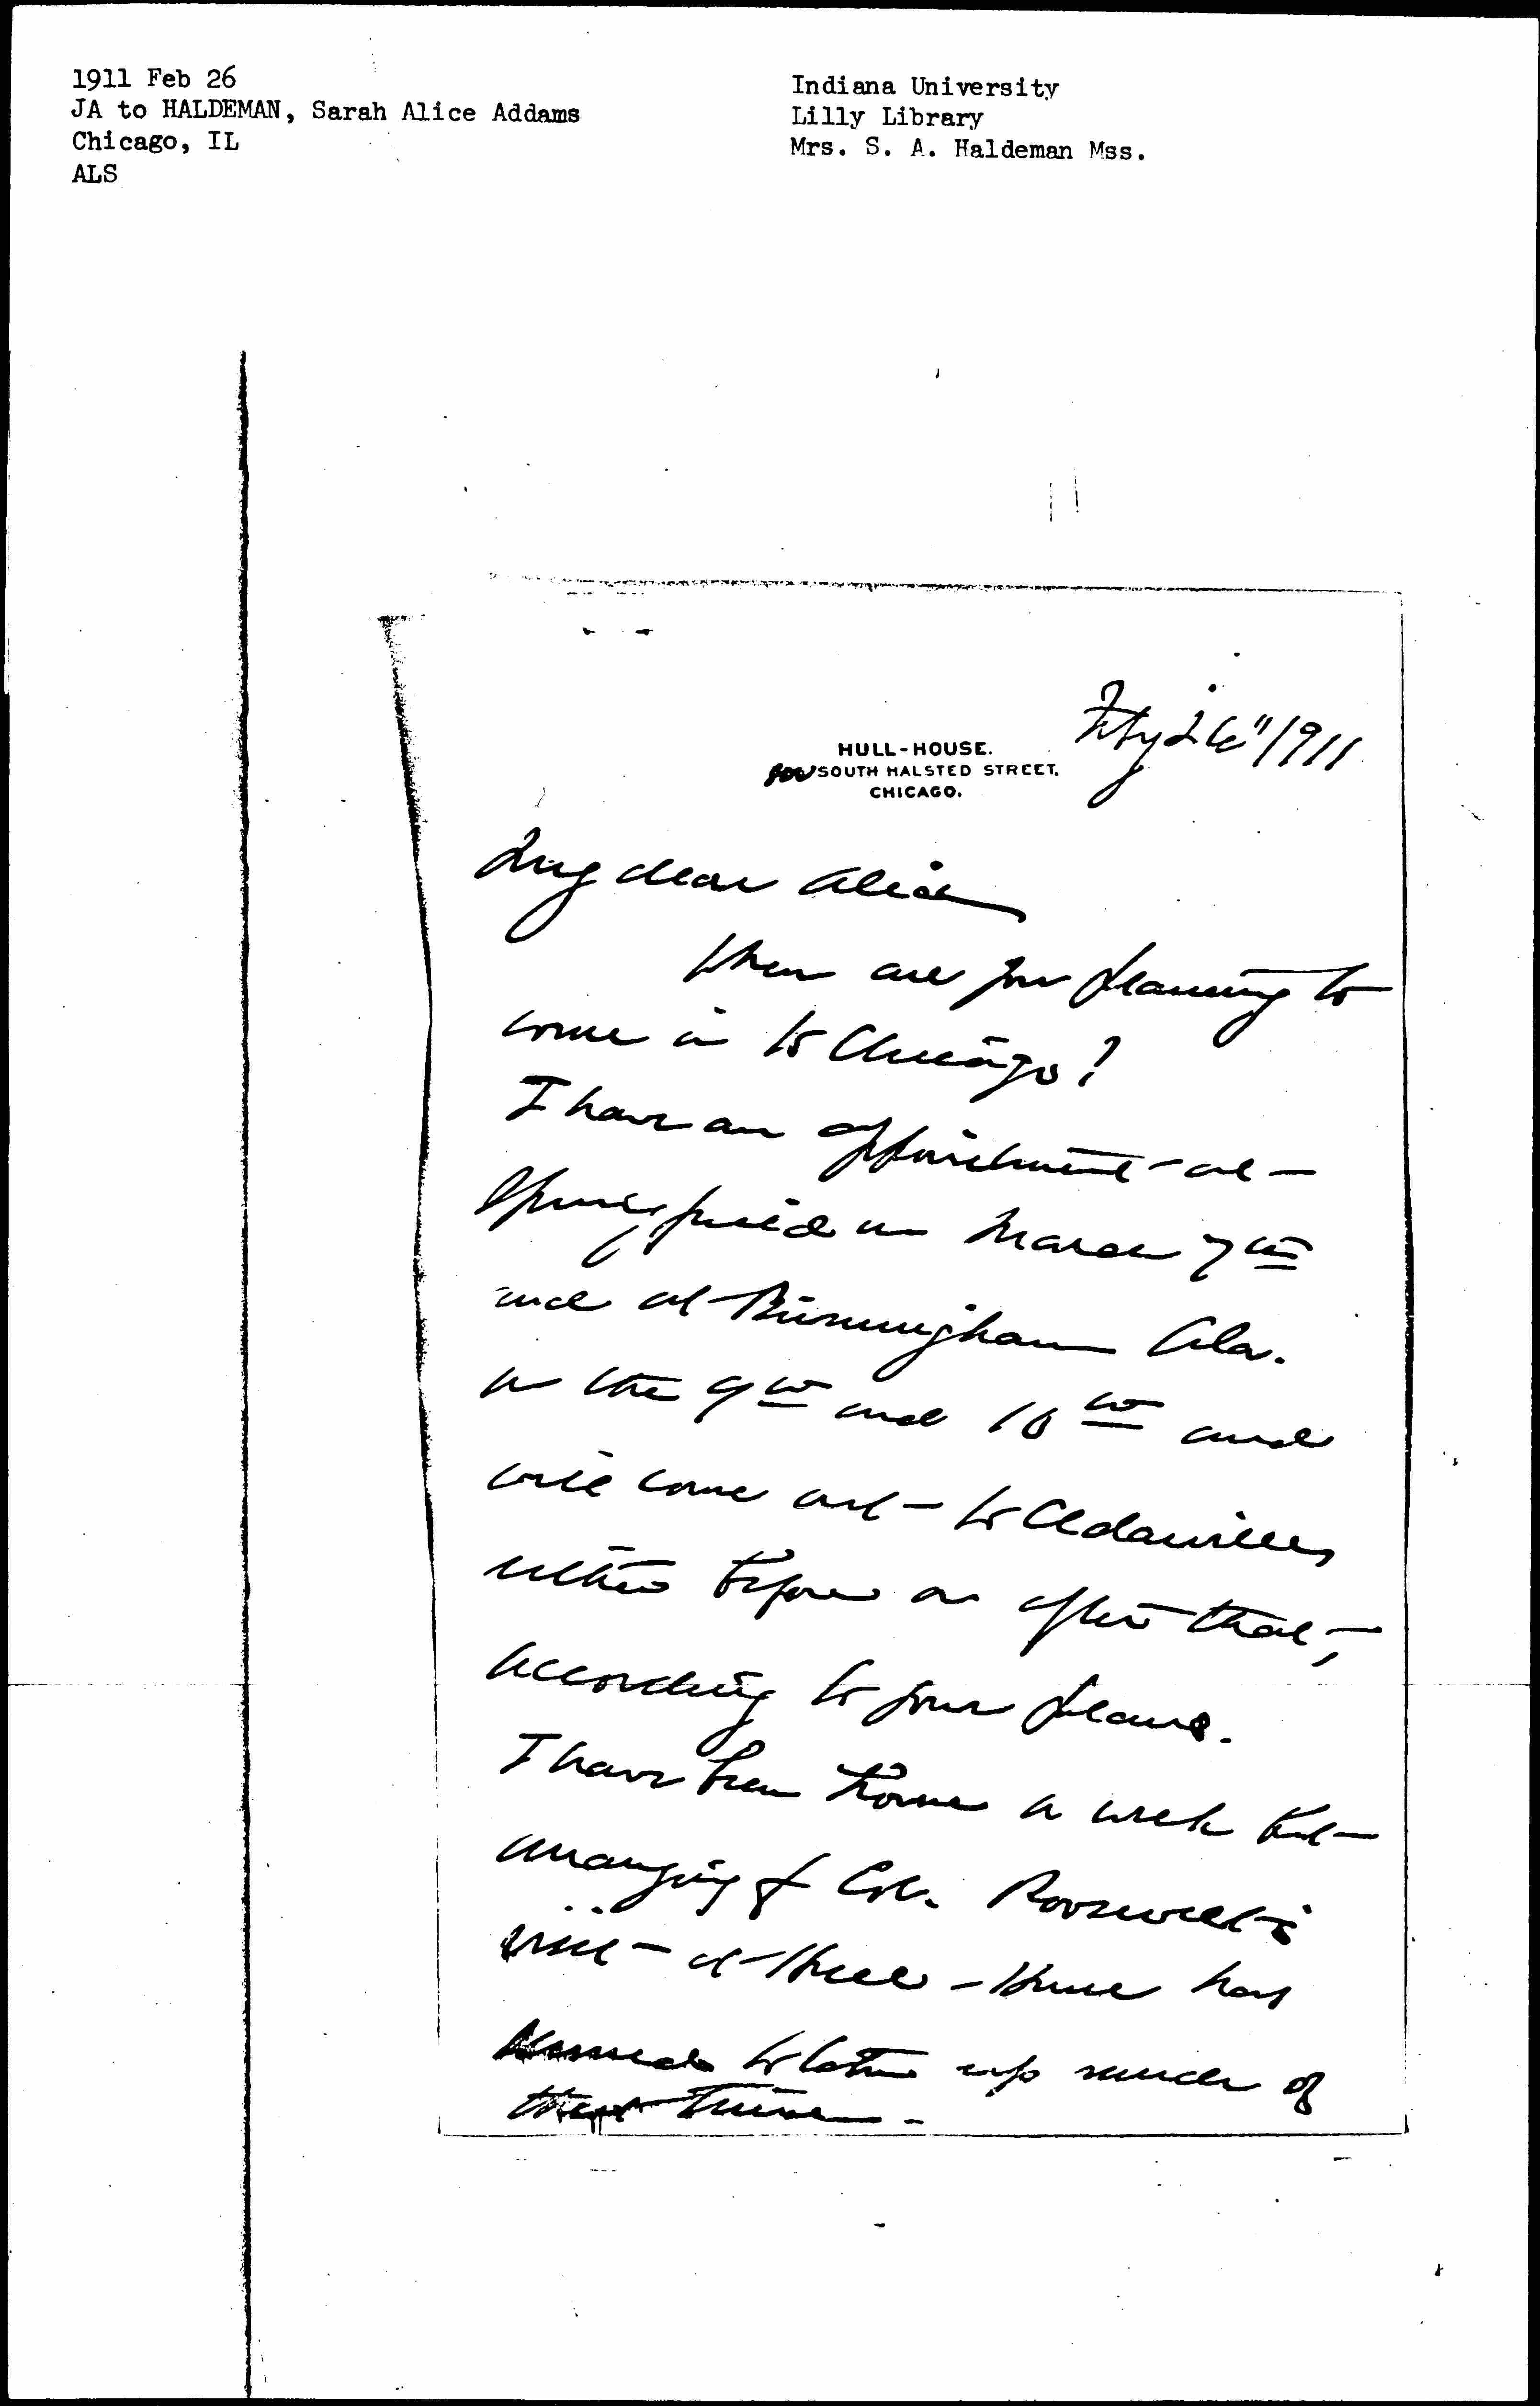 1911 Feb 26
JA to HALDEMAN, Sarah Alice Addams
Chicago, IL
ALS
Indiana University
Lilly Library
Mrs. S. A. Haldeman Mss.
Feby 26" 1911
HULL-HOUSE.
800 SOUTH HALSTED STREET.
CHICAGO.
My dear Alice
When are you planning to
come in to Chicago?
I have an appointment at
Springfield on March 7th
and at Birmingham Ala.
on the 9th and 10th and
will come out to Cedarville,
either before or after that,
according to your plans.
I have been home a week but
arranging of Col. Roosevelt's
visit at Hull-House has
seemed to take up much of
that time.